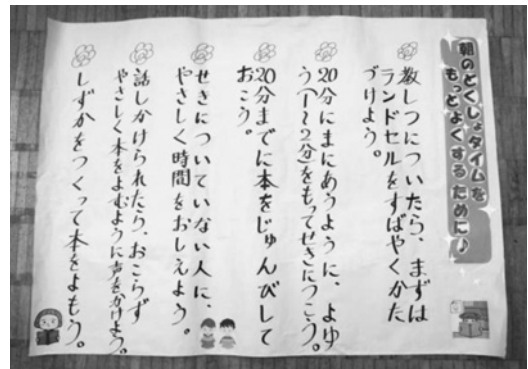 朝のどくしょタイムを
もっとよくするために♪
教しつについたら、まずは
ランドセルをすばやくかた
づけよう。
20分にまにあうように、よゆ
う(1~2分)をもってせきにつこう。
20分までに本をじゅんびして
おこう。
せきについていない人に、
やさしく時間をおしえよう。
話しかけられたら、おこらず
やさしく本をよむように声をかけよう。
しずかをつくって本をよもう。